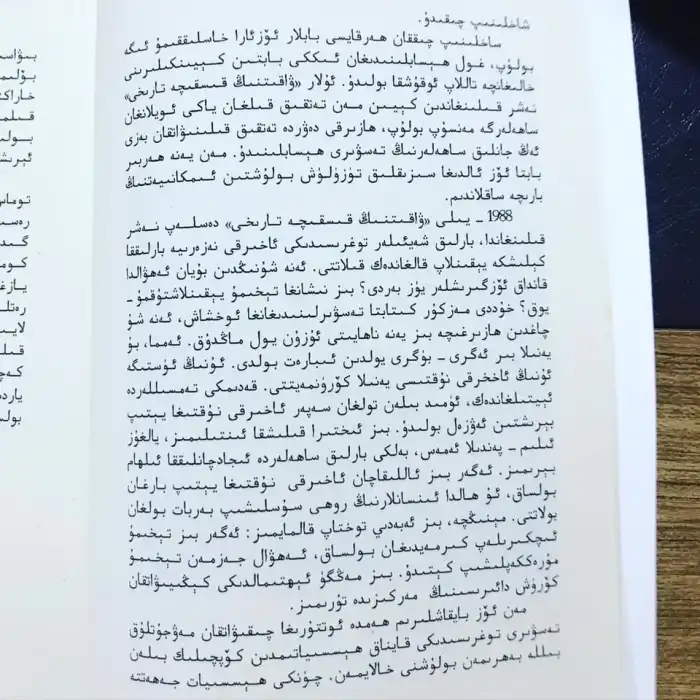 شاخلىنىپ چىقىدۇ.
ساخلىنىپ چىققان ھەرقايسى بابلار ئۆزئارا خاسلىققىمۇ ئىگە
بولۇپ، غول ھېسابلىنىدىغان ئىككى بابتىن كېيىنكىلىرىنى
خالىغانچە تاللاپ ئوقۇشقا بولىدۇ. ئۇلار «ۋاقىتنىڭ قىسقىچە تارىخى»
نەشر قىلىنغاندىن كېيىن مەن تەتقىق قىلغان ياكى ئويلانغان
ساھەلەرگە مەنسۇپ بولۇپ، ھازىرقى دەۋردە تەتقىق قىلىنىۋاتقان بەزى
ئەڭ جانلىق ساھەلەرنىڭ تەسۋىرى ھېسابلىنىدۇ. مەن يەنە ھەربىر
بابتا ئۆز ئالدىغا سىزىقلىق تۈزۈلۈش بولۇشتىن ئىمكانىيەتنىڭ
بارىچە ساقلاندىم.
1988 ـ يىلى «ۋاقىتنىڭ قىسقىچە تارىخى» دەسلەپ نەشر
قىلىنغاندا، بارلىق شەيئىلەر توغرىسىدىكى ئاخىرقى نەزەرىيە بارلىققا
كېلىشكە يېقىنلاپ قالغاندەك قىلاتتى. ئەنە شۇنىڭدىن بۇيان ئەھۋالدا
قانداق ئۆزگىرىشلەر يۈز بەردى؟ بىز نىشانغا تېخىمۇ يېقىنلاشتۇقمۇ ـ
يوق؟ خۇددى مەزكۇر كىتابتا تەسۋىرلىنىدىغانغا ئوخشاش، ئەنە شۇ
چاغدىن ھازىرغىچە بىز يەنە ناھايىتى ئۇزۇن يول ماڭدۇق. ئەمما، بۇ
يەنىلا بىر ئەگرى ـ بۈگرى يولدىن ئىبارەت بولدى. ئۇنىڭ ئۈستىگە
ئۇنىڭ ئاخىرقى نۇقتىسى يەنىلا كۆرۈنمەيتتى. قەدىمكى تەمسىللەردە
ئېيتىلغاندەك، ئۈمىد بىلەن تولغان سەپەر ئاخىرقى نۇقتىغا يېتىپ
بېرىشتىن ئەۋزەل بولىدۇ. بىز ئىختىرا قىلىشقا ئىنتىلىمىز، يالغۇز
ئىلىم ـ پەندىلا ئەمەس، بەلكى بارلىق ساھەلەردە ئىجادچانلىققا ئىلھام
بېرىمىز. ئەگەر بىز ئاللىقاچان ئاخىرقى نۇقتىغا يېتىپ بارغان
بولساق، ئۇ ھالدا ئىنسانلارنىڭ روھى سۇسلىشىپ بەربات بولغان
بولاتتى. مېنىڭچە، بىز ئەبەدىي توختاپ قالمايمىز: ئەگەر بىز تېخىمۇ
ئىچكىرىلەپ كىرمەيدىغان بولساق، ئەھۋال جەزمەن تېخىمۇ
مۇرەككەپلىشىپ كېتىدۇ. بىز مەڭگۈ ئېھتىمالدىكى كېڭىيىۋاتقان
كۆرۈش دائىرىسىنىڭ مەركىزىدە تۇرىمىز.
مەن ئۆز بايقاشلىرىم ھەمدە ئوتتۇرىغا چىقىۋاتقان مەۋجۇتلۇق
تەسۋىرى توغرىسىدىكى قايناق ھېسسىياتىمدىن كۆپچىلىك بىلەن
بىللە بەھرىمەن بولۇشنى خالايمەن. چۈنكى ھېسسىيات جەھەتتە